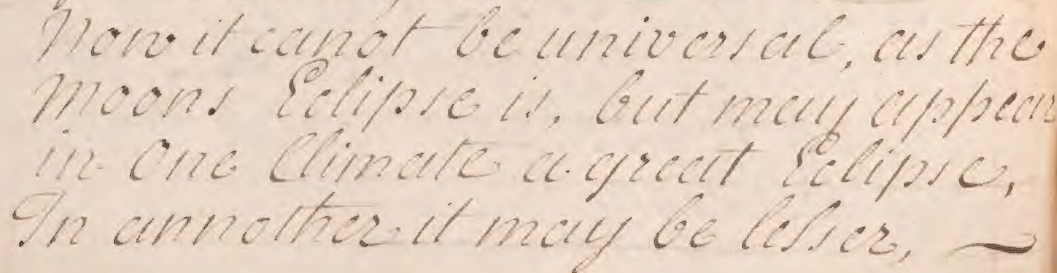 Now it canot be universal, as the
Moons Eclipse is, but may appear
in One Climate a great Eclipse,
In annother it may be lesser,